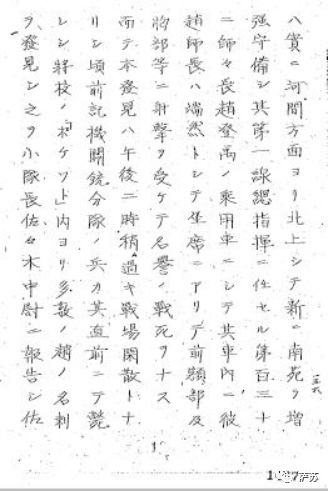 ハ實ニ河間方面ヨリ北上シテ新ニ南苑ヲ増
强守備シ其第一線總指揮ニ任セル第百三十
二師々長趙登禹ノ乗用車ニシテ其車内ニ彼
趙師長ハ端然トシテ坐席ニアリテ前額部及
胸部等ニ射撃ヲ受ケテ名譽ノ戦死ヲナス
而テ本發見ハ午後二時稍過キ戦場閑散トナ
リシ頃前記機關銃分隊ノ兵カ其直前ニテ斃
レシ將校ノ「ポケツト」内ヨリ多数ノ趙ノ名刺
ヲ發見シ之ヲ小隊長佐々木中尉ニ報告シ佐
萨苏